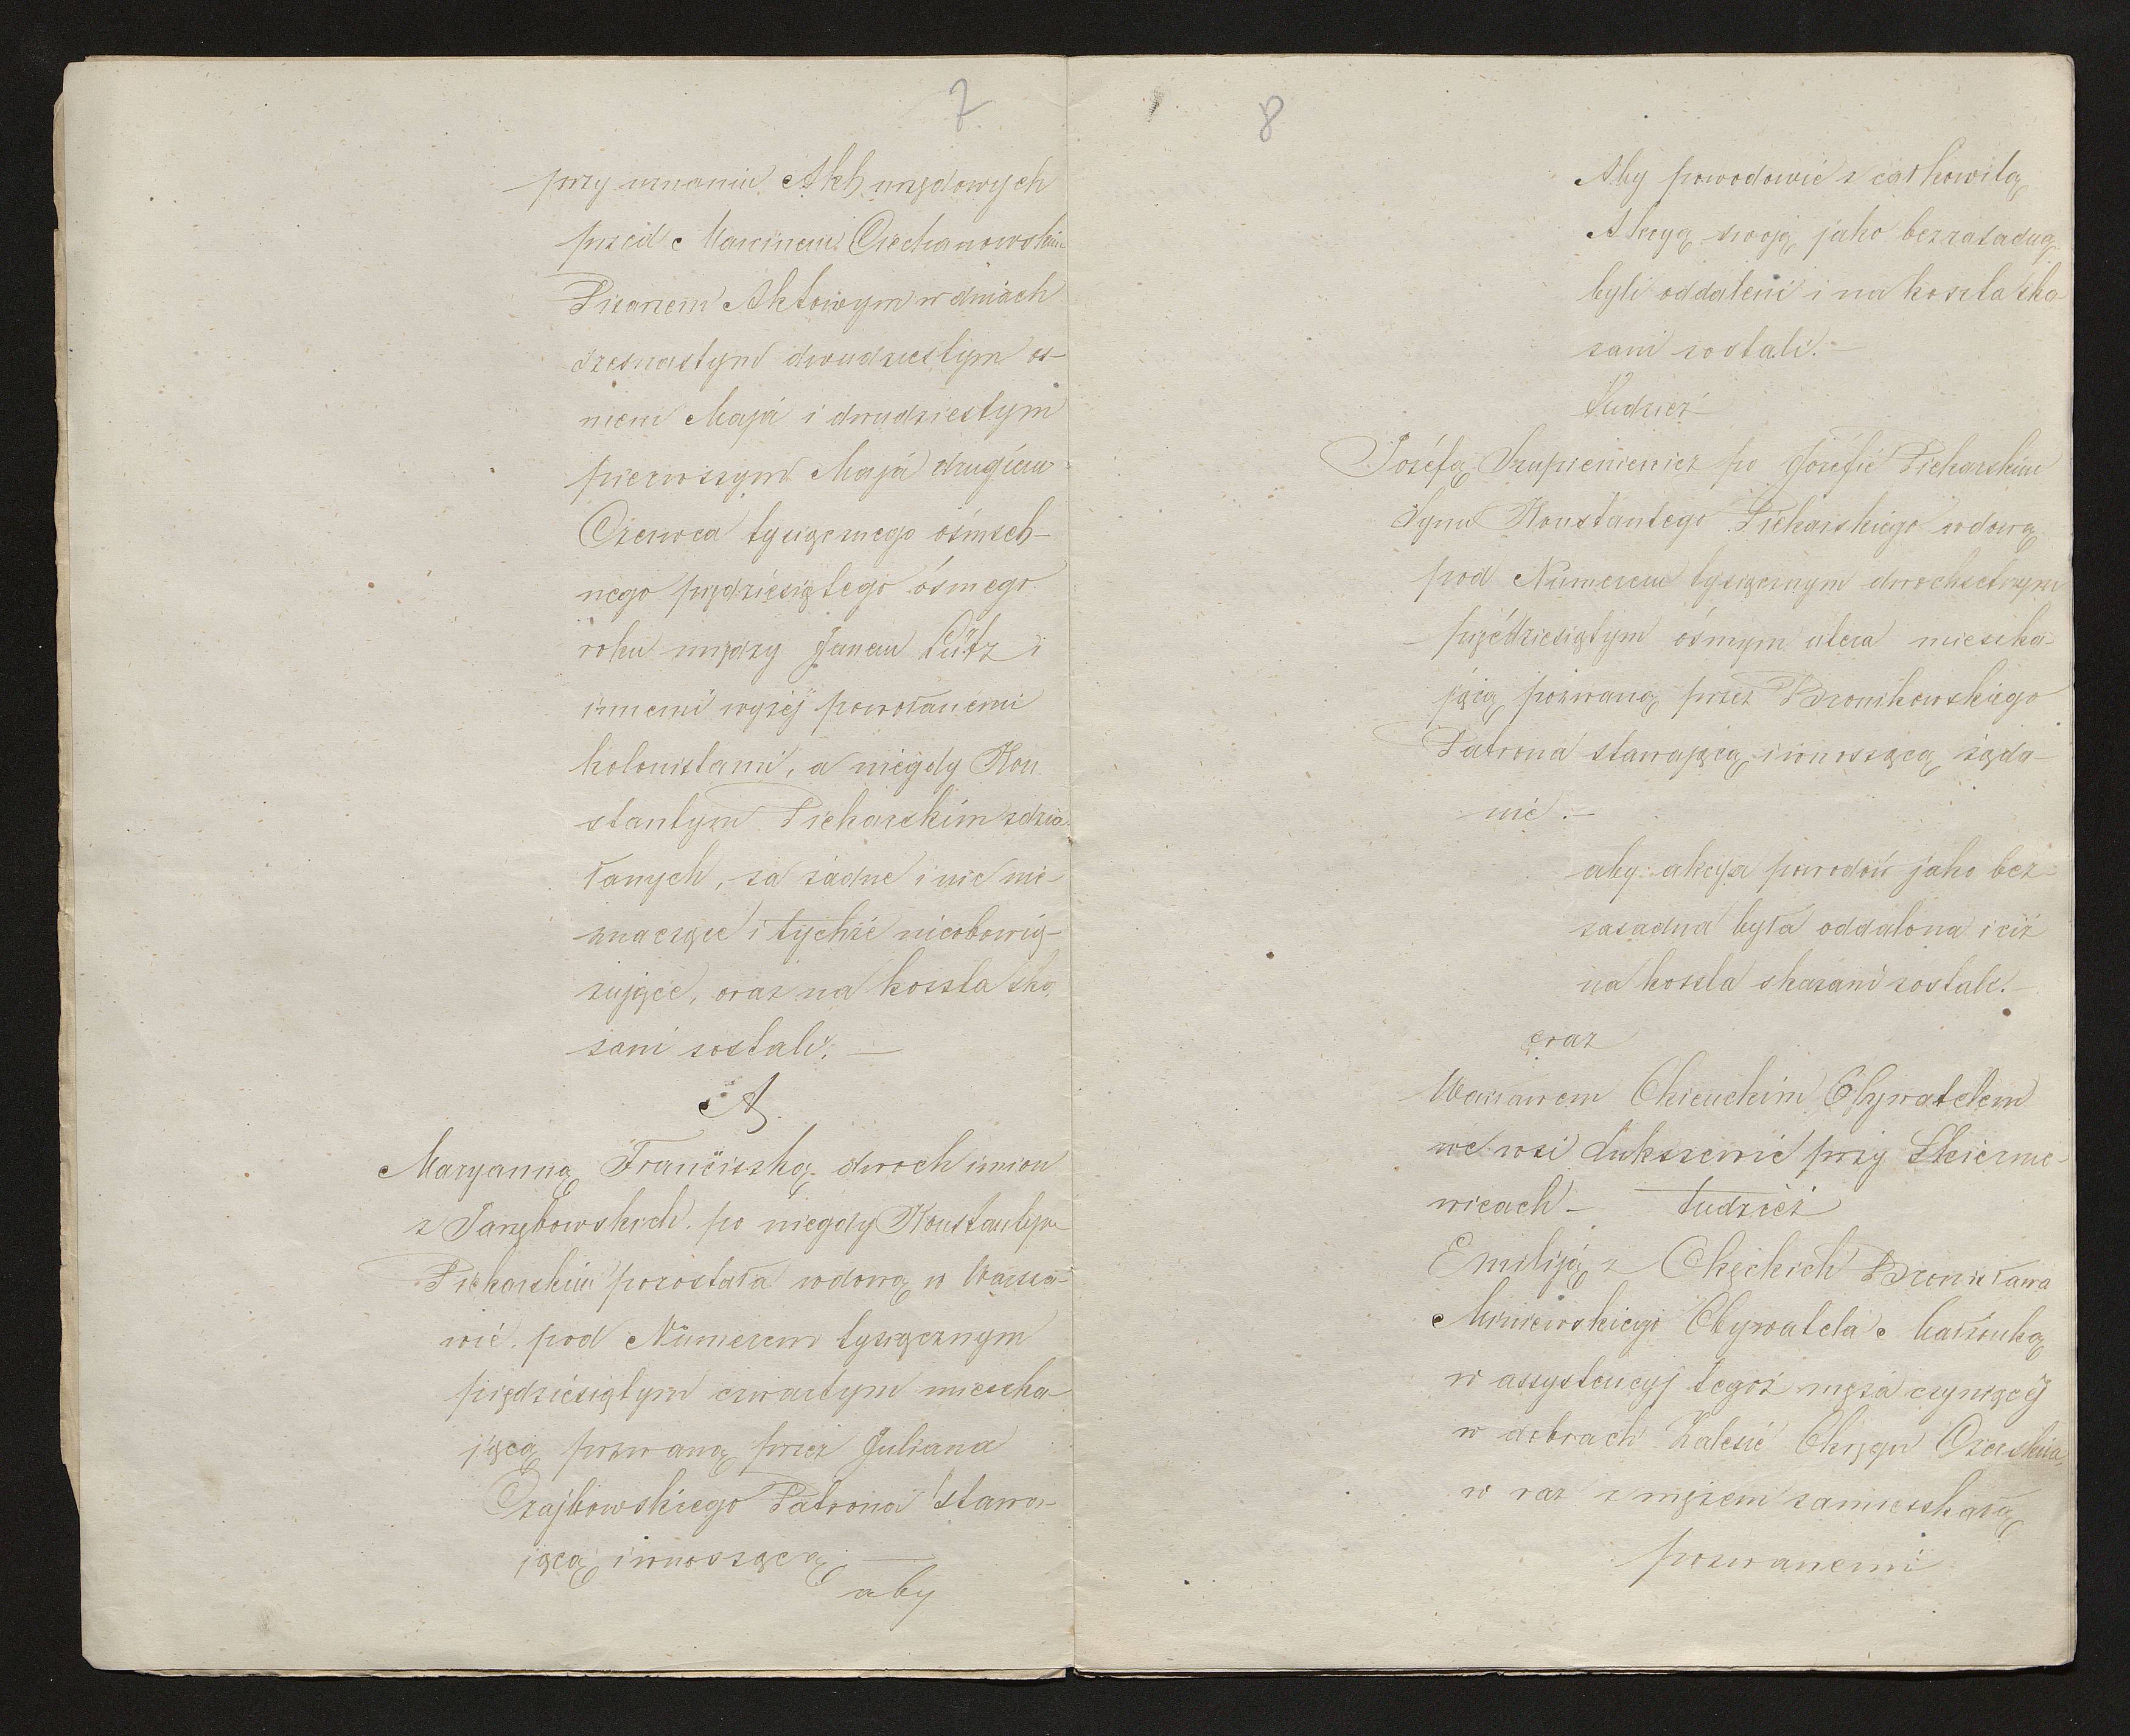 7
przy uznaniu Akt urzędowych
przed Marcinem Ciechanowskim
Pisarzem Aktowym w dniach
szesnastym dwudziestym os-
mem Maja i dwudziestym
pierwszym Maja drugiem
Czerwca tysiącznego ośmset-
nego piędziesiątego ósmego
roku między Janem Lütz i
innemi wyżéj powołanemi
kolonistami, a niegdy Kon
stantym Piekarskim zdzia-
łanych, za żadne i nic nie-
znaczące i tychże nieobowią-
zujące, oraz na koszta ska
zani zostali. —
A
Maryanną Franciszką dwoch imion
z Jarzębowskich po niegdy Konstantym
Piekarskim pozostała wdową w Warsza-
wie pod Numerem tysiącznym
piędziesiątym czwartym mieszka-
jącą pozwaną przez Juliana
Czajkowskiego Patrona stawa-
jącą i wnoszącą —
aby
8
Aby powodowie z całkowitą
Akcyą swoją jako bezzasadną
byli oddaleni i na koszta ska
zani zostali. —
Tudzież
Józefą Szupieniewicz po Józefie Piekarskim
Synu Konstantego Piekarskiego wdową
pod Numerem tysiącznym dwochsetnym
pięćdziesiątym ósmym litera mieszka-
jącą pozwaną przez Bronikowskiego
Patrona stawającą i wnoszącą żąda-
nie. —
aby akcya powodów jako bez-
zasadna była oddalona i ciż
na koszta skazani zostali. —
oraz
Obywatelem
we wsi Łukszewie przy Skiernie-
wicach — tudzież
Emiliją z Chęckich Bronisława
Mniewskiego Obywatela Małżonką
w assystencyj tegoż męża czyniącéj
w dobrach Zalesie Okręgu Czerskim
w raz z mężem zamieszkałą
pozwanemi